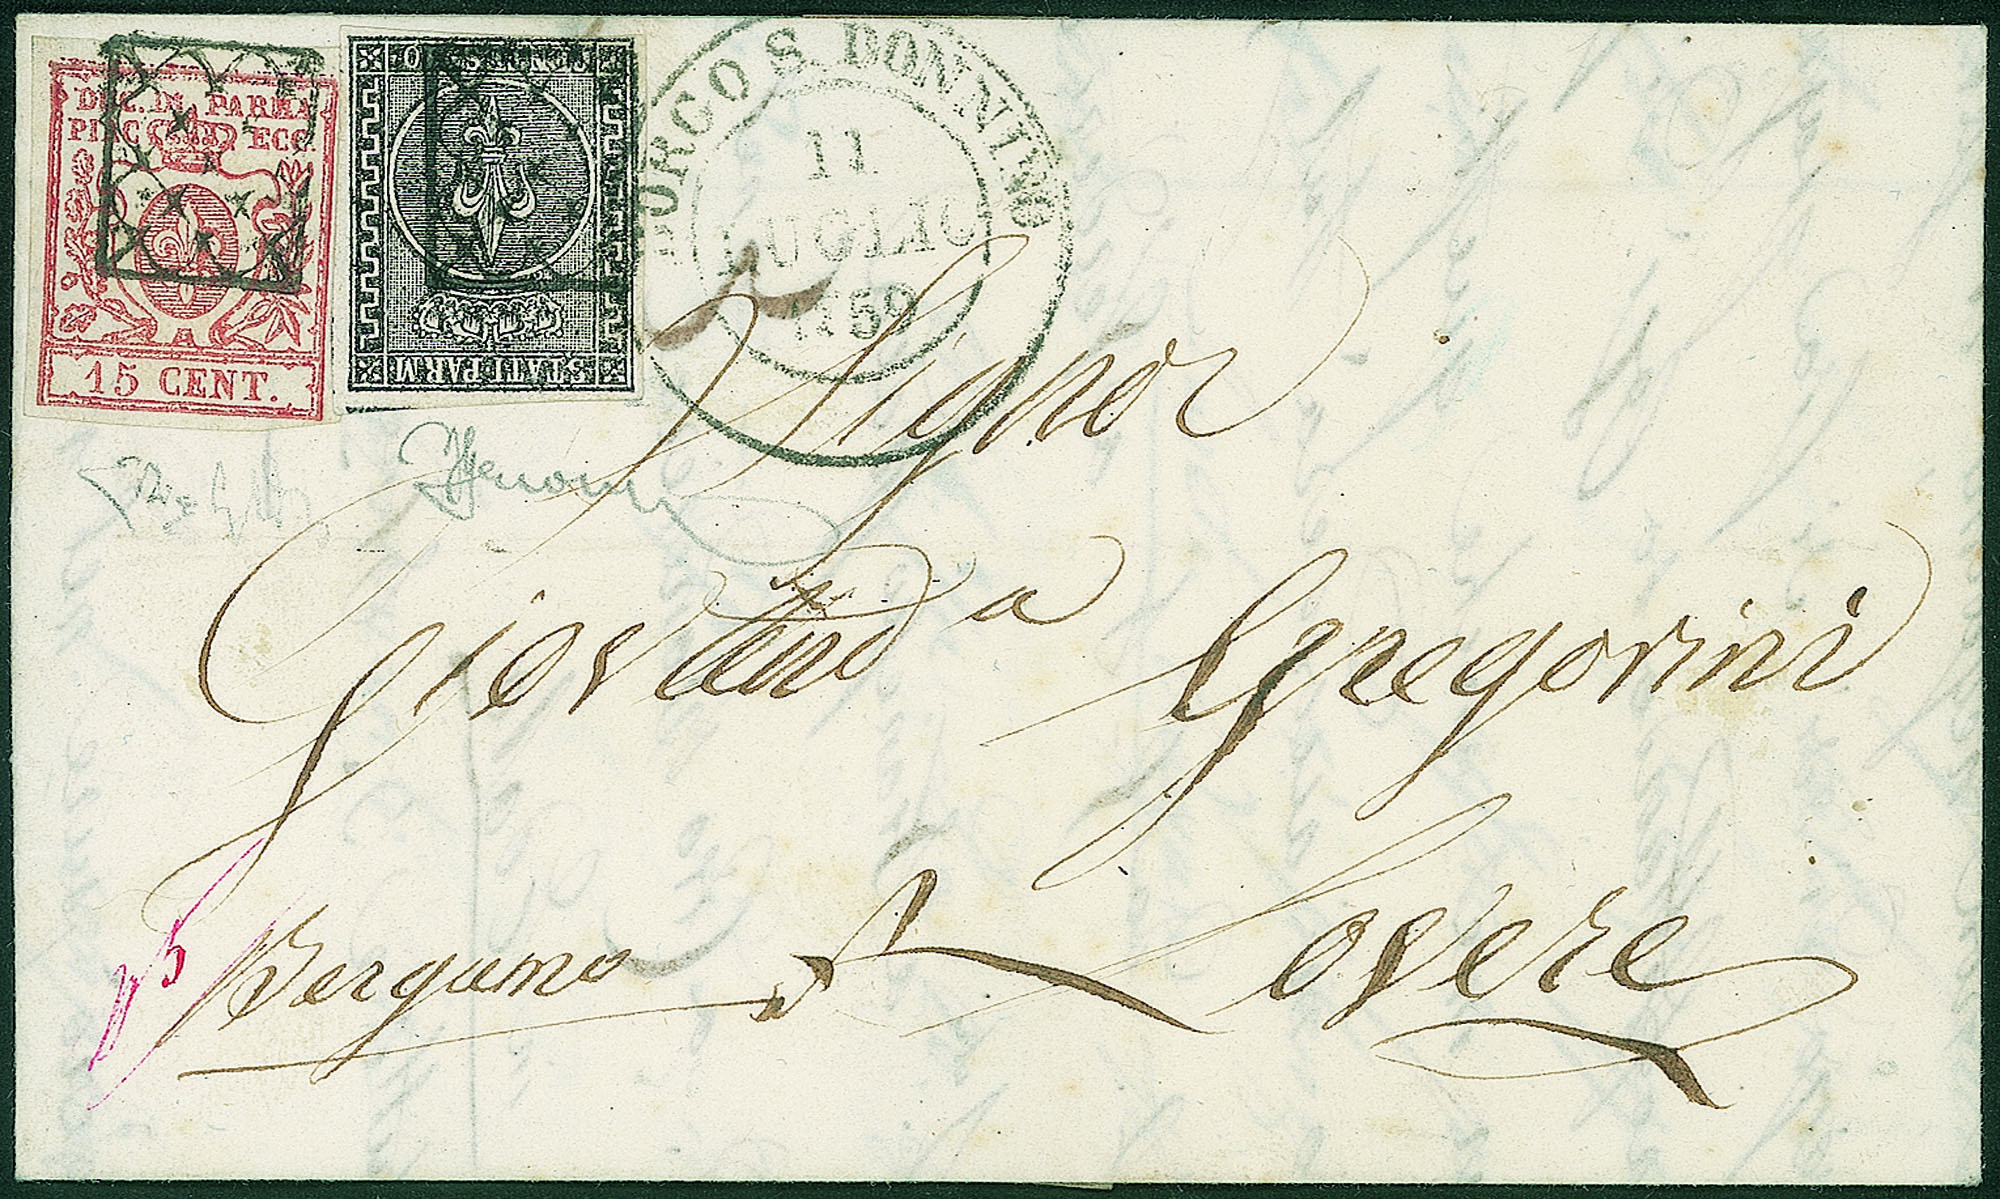 DUC. DI PARMA
PIAC. ECC.
15 CENT.
10 CENTESIMI
STATI PARM.
BORGO S. DONNINO
11
LUGLIO
1859
Signor
Giovanni Gregorini
Bergamo Lovere